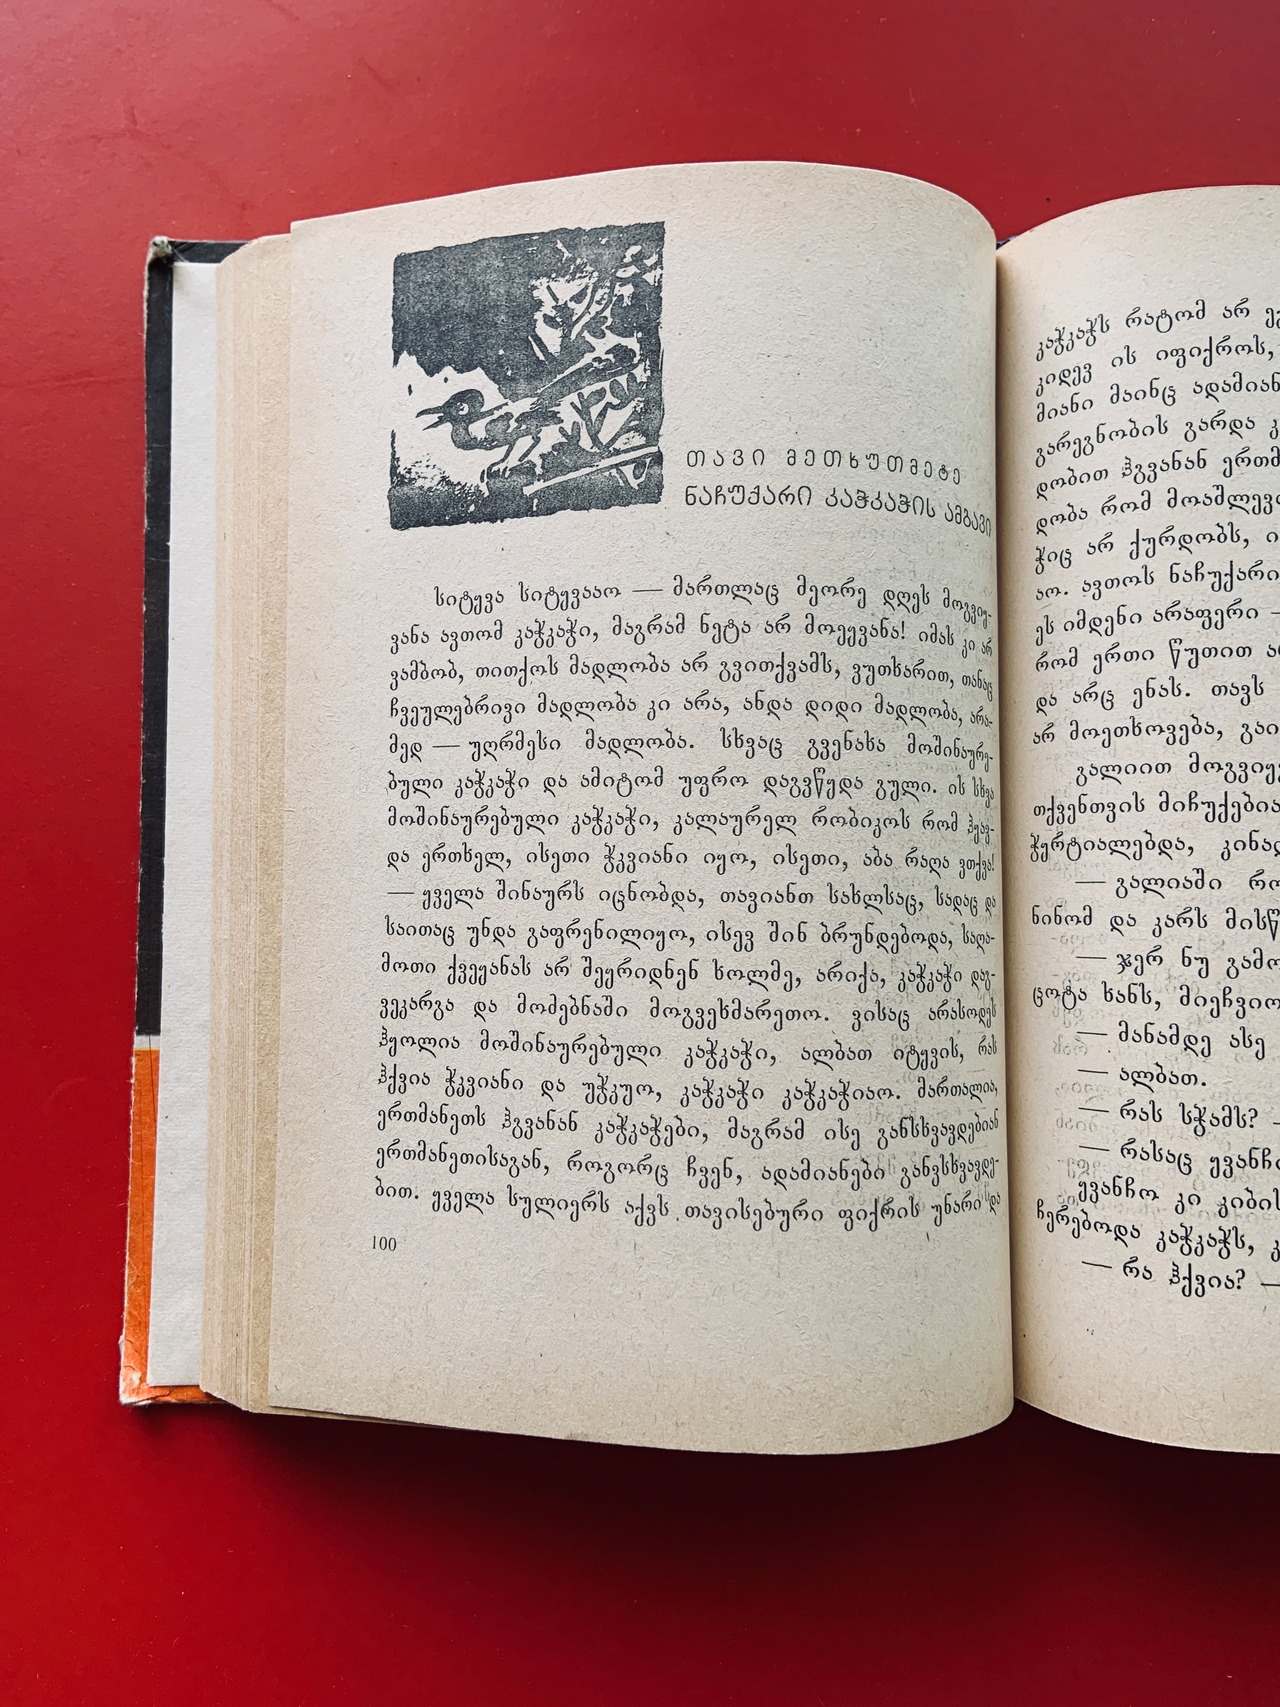 თავი მეთხუთმეტე
ნაჩუქარი კაჭკაჭის ამბავი
სიტყვა სიტყვააო — მართლაც მეორე დღეს მოგვიყ-
ვანა ავთომ კაჭკაჭი, მაგრამ ნეტა არ მოეყვანა! იმას კი არ
ვამბობ, თითქოს მადლობა არ გვითქვამს, ვუთხარით, თანაც
ჩვეულებრივი მადლობა კი არა, ანდა დიდი მადლობა, არა-
მედ — უღრმესი მადლობა. სხვაც გვენახა მოშინაურე-
ბული კაჭკაჭი და ამიტომ უფრო დაგვწყდა გული. ის სხვა
მოშინაურებული კაჭკაჭი, კალაურელ რობიკოს რომ ჰყავ-
და ერთხელ, ისეთი ჭკვიანი იყო, ისეთი, აბა რაღა ვთქვა!
— ყველა შინაურს იცნობდა, თავიანთ სახლსაც, სადაც და
საითაც უნდა გაფრენილიყო, ისევ შინ ბრუნდებოდა, საღა-
მოთი ქვეყანას არ შეყრიდნენ ხოლმე, არიქა, კაჭკაჭი დაგ-
ვეკარგა და მოძებნაში მოგვეხმარეთო. ვისაც არასოდეს
ჰყოლია მოშინაურებული კაჭკაჭი, ალბათ იტყვის, რას
ჰქვია ჭკვიანი და უჭკუო, კაჭკაჭი კაჭკაჭიაო. მართალია,
ერთმანეთს ჰგვანან კაჭკაჭები, მაგრამ ისე განსხვავდებიან
ერთმანეთისაგან, როგორც ჩვენ, ადამიანები განვსხვავდე-
ბით. ყველა სულიერს აქვს თავისებური ფიქრის უნარი და
100
კაჭკაჭს რატომ არ
კიდევ ის იფიქროს,
მიანი მაინც
გარეგნობის გარდა
დობით ჰგვანან
დობა რომ
ჭიც არ ქურდობს,
აო. ავთოს ნაჩუქარი
ეს იმდენი არაფერი —
რომ ერთი წუთით
და არც ენას. თავს
არ მოეთხოვება,
გალიით
თქვენთვის
ჭერტიალებდა,
— გალიაში
ნინომ და კარს
— ჯერ ნუ
ცოტა ხანს,
— მანამდე ასე
— ალბათ.
— რას სჭამს? —
— რასაც
ყვანჩო კი
ჩერებოდა კაჭკაჭს,
— რა ჰქვია? —